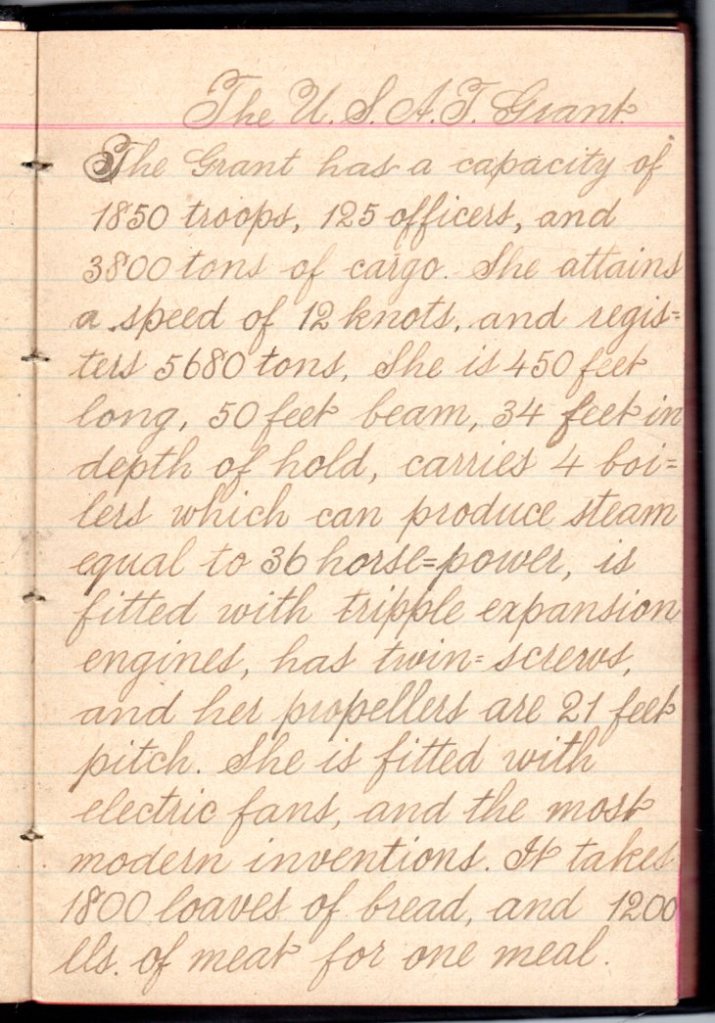 The U.S.A.T. Grant.
The Grant has a capacity of
1850 troops, 125 officers, and
3800 tons of cargo. She attains
a speed of 12 knots, and regis=
ters 5680 tons, She is 450 feet
long, 50 feet beam, 34 feet in
depth of hold, carries 4 boi=
lers which can produce steam
equal to 36 horse=power, is
fitted with tripple expansion
engines, has twin=screws,
and her propellers are 21 feet
pitch. She is fitted with
electric fans, and the most
modern inventions. It takes
1800 loaves of bread, and 1200
lls. of meat for one meal.